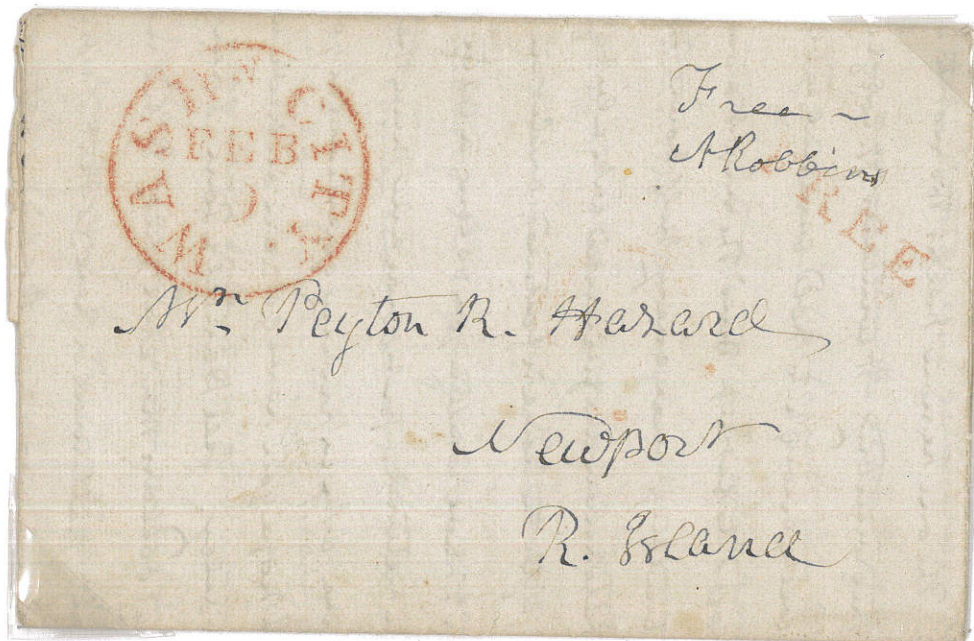 WASHN CITY.
FEB
9
Free
ARobbins
FREE
Mr. Peyton R. Hazard
Newport
R. Island